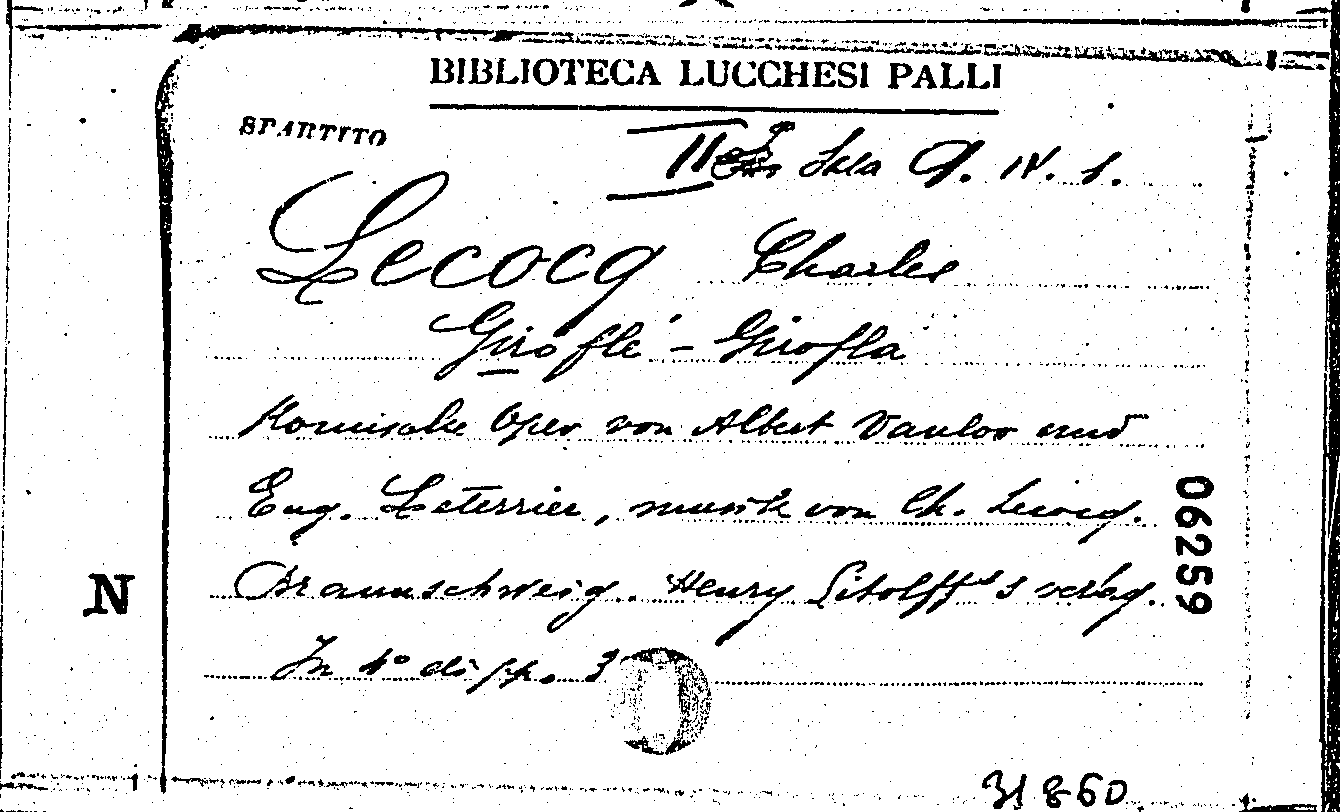 BIBLIOTECA LUCCHESI PALLI
SPARTITO
II Sala IV. 1.
Lecocq Charles
Giroflé - Girofla
Komische Oper von Albert Vanloo und
Eug. Leterrier, musik von Ch. Lecocq.
Braunschweig. Henry Litolff's verlag.
In 4° di pp. 3
06259
N
31860